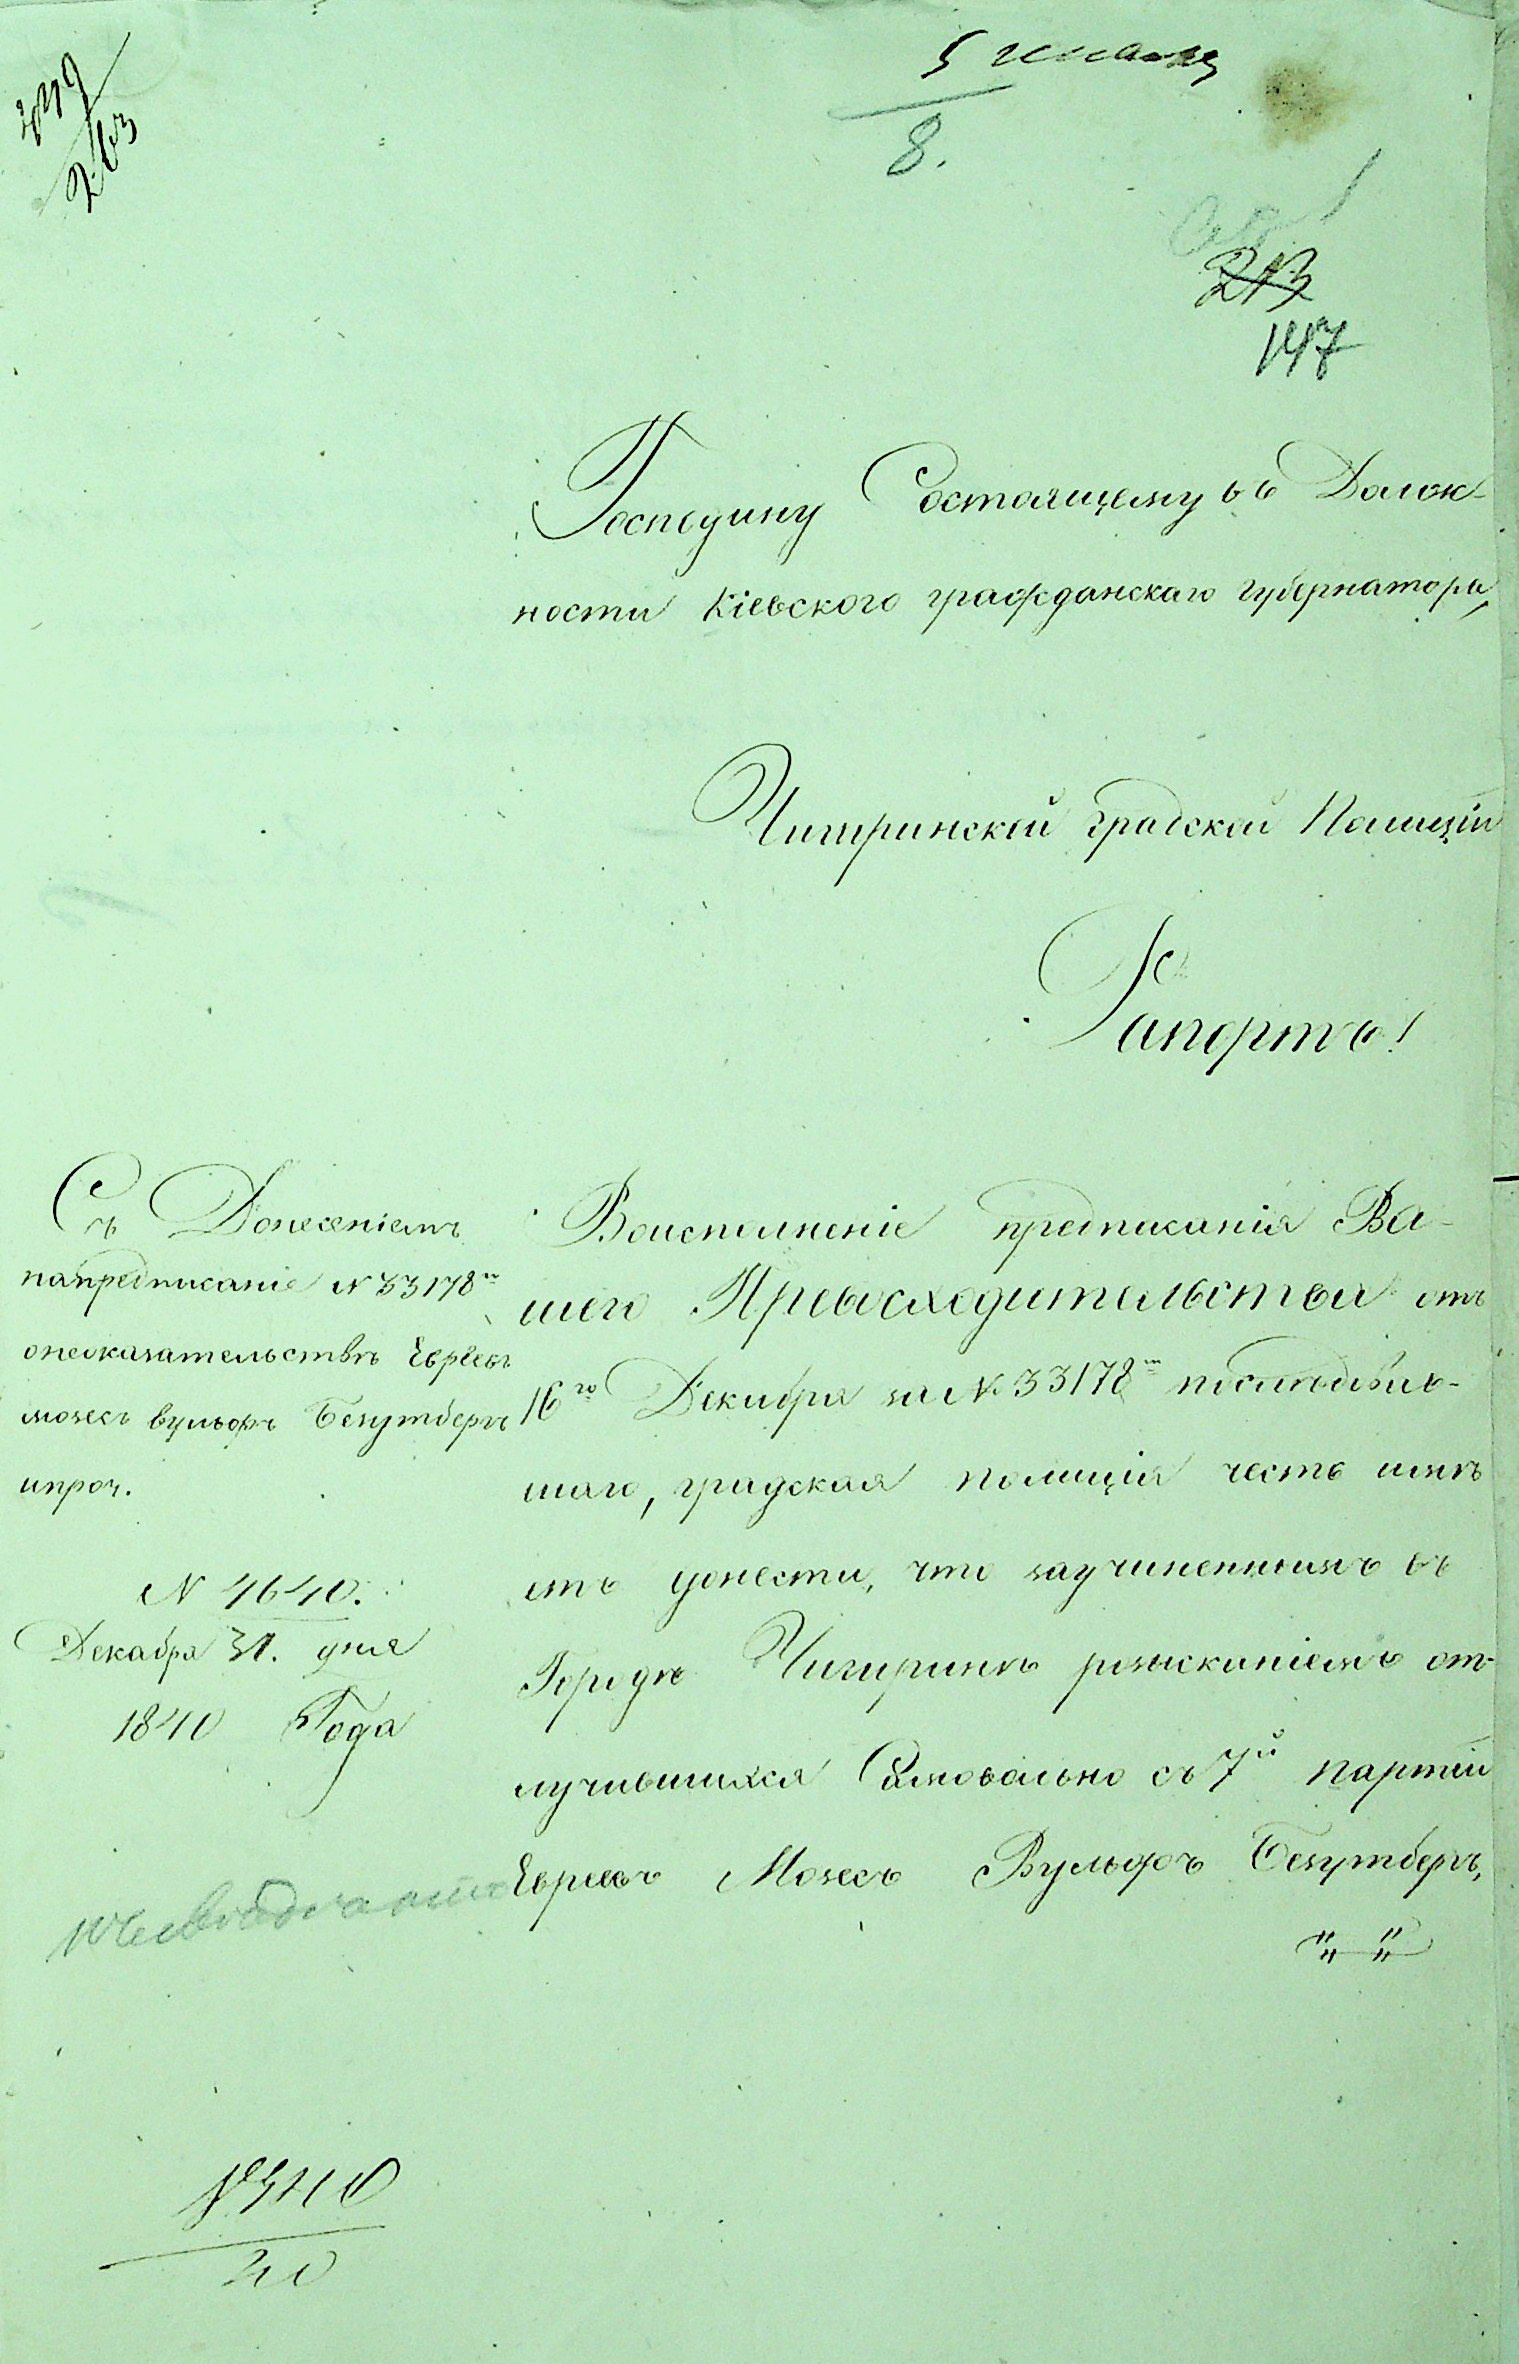 349
263
5 генваря
8.
213
147
Господину Состоящему въ Долж-
ности Кіевского гражданскаго губернатора,
Чигиринской градской Полиціи
Рапортъ!
Съ Донесеніемъ
напредписаніе № 33178м
онеоказательствѣ Евреевъ
мозесъ вульфъ Безутбергъ
ипроч.
№ 4640.
Декабря 31. дня
1840 Года
Воисполненіе предписанія Ва-
шего Превосходительства отъ
16го Декабря за № 33178м послѣдовав-
шаго, градская полиція честь имѣ-
етъ донести, что заучиненнымъ въ
Городѣ Чигиринѣ розысканіемъ от-
лучившихся Самовольно съ 7й партіи
Евреевъ Мозесъ Вульфъ Безутбергъ,